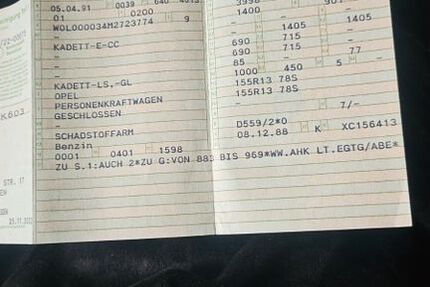 05.04.91 0039 640
01 0200
W0L000034M2723774 9
-
KADETT-E-CC
-
-
KADETT-LS,-GL
OPEL
PERSONENKRAFTWAGEN
GESCHLOSSEN
-
SCHADSTOFFARM
Benzin
0001 0401 1598
ZU S.1:AUCH 2*ZU G:VON 883 BIS 969*WW.AHK LT.EGTG/ABE*
3998
1400 -
- 1405 1405
690 715 -
690 715
85 - 77
1000 450 5 -
155R13 78S
155R13 78S
-
- 7/-
D559/2*0
08.12.88 K XC156413
K603
STR. 17